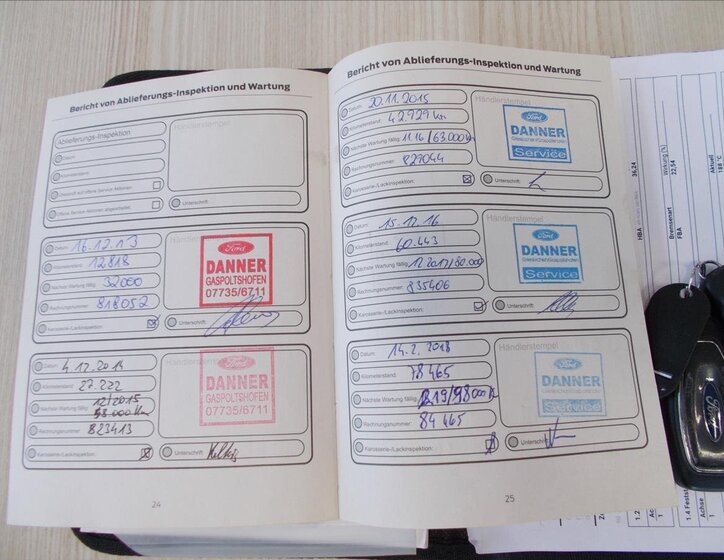 Bericht von Ablieferungs-Inspektion und Wartung
Ablieferungs-Inspektion
Händlerstempel
Datum:
Kilometerstand:
Offene Service Aktionen abgearbeitet:
Unterschrift:
Datum: 16.12.13
Kilometerstand: 12818
Nächste Wartung fällig: 32000
Rechnungsnummer: 818052
Karosserie-/Lackinspektion:
Ford
DANNER
GASPOLTSHOFEN
07735/6711
Unterschrift:
Datum: 4.12.2014
Kilometerstand: 27.222
Nächste Wartung fällig: 12/2015
58.000 Km
Rechnungsnummer: 823413
Karosserie-/Lackinspektion:
Händlerstempel
Ford
DANNER
GASPOLTSHOFEN
07735/6711
Unterschrift:
24
Bericht von Ablieferungs-Inspektion und Wartung
Datum: 20.11.2015
Kilometerstand: 42929 km
Nächste Wartung fällig: 11.16/63.000
Rechnungsnummer: 827044
Karosserie-/Lackinspektion:
Händlerstempel
Ford
DANNER
Service
Unterschrift:
Datum: 15.12.16
Kilometerstand: 60.443
Nächste Wartung fällig:
Rechnungsnummer: 835406
Karosserie-/Lackinspektion:
Ford
DANNER
Service
Unterschrift:
Datum: 14.2.2018
Kilometerstand: 78465
Nächste Wartung fällig:
Rechnungsnummer: 84465
Karosserie-/Lackinspektion:
Händlerstempel
Ford
DANNER
Service
Unterschrift:
25
HBA
36,24
Bremsenart
FBA
Wirkung [%]
22,54
Aktuell
188 °C
Ford